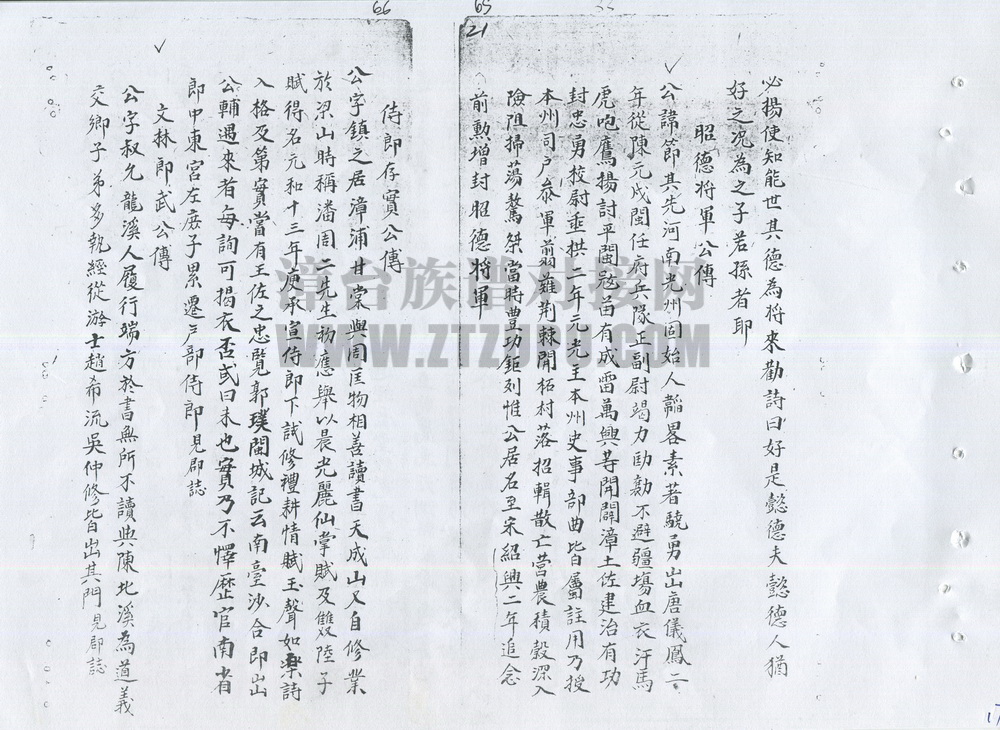 66
65
21
必揚使知能世其德為將來勸詩曰好是懿德夫懿德人猶
好之況為之子若孫者耶
昭德将軍公傳
公諱節其先河南光州固始人韜畧素著驍勇出唐儀鳳二
年從陳元戌閩任府兵隊正副尉竭力劻勷不避疆場血衣汗馬
虎咆鷹揚討平閩冦苗有成雷萬興等開闢漳土佐建治有功
封忠勇校尉垂拱二年元光主本州史事部曲皆屬註用乃授
本州司户叅軍翦薙荆棘開柘村落招輯散亡营農積穀深入
險阻掃荡驁桀當時豊功鉅列惟公居名至宋紹興二年追念
前勲增封昭德将軍
侍郎存實公傳
公字鎮之居漳浦甘棠與周匡物相善讀書天成山又自修業
於梁山時稱潘周二先生物應舉以晨光麗仙掌賦及雙陸子
賦得名元和十三年庾承宣侍郎下試修禮耕情賦玉聲如樂詩
入格及第實當有王佐之忠覧郭璞閩城記云南臺沙合即出
公輔遇來者每詢可揭衣否或曰未也實乃不懌歷官南省
郎中東宮左庶子累遷户部侍郎見郡誌
文林郎武公傳
公字叔允龍溪人履行端方於書無所不讀與陳北溪為道義
交鄉子弟多執經從游士趙希流吳仲修皆出其門見郡誌
漳台族谱对接网
WWW.ZTZ
17